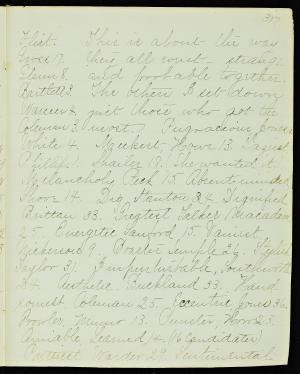 317
Flist. This is about the way
Gross 17. they all went - strange
Glenn 8. and probable together.
Bartlett 3. The others I set down
Warren 2 just those who got the
Coleman 3. most. Pugnacious, Jones
White 4. Meekest - Howe 13. Vainest
Phillips 1. Shailer 18. (She wanted it
Melancholy, Peck 15. Absent minded,
Thorr 14. Dig, Stanton 24. Dignified
Brittan 33. Biggest Talker Macadam
25. Energetic Sanford 15. Vainest
Nickerson 9. Bravest Temple 36. Stylish
Taylor 31. Imperturbable, Southworth
24. Aesthetic. Buckland 33. Hand
somest Coleman 25. Eccentric Jones 36.
Prowler, Munro 13. Punster, Howe 23.
Amiable, Learned 14. (16 Candidates)
Prettiest Warder 29. Sentimental